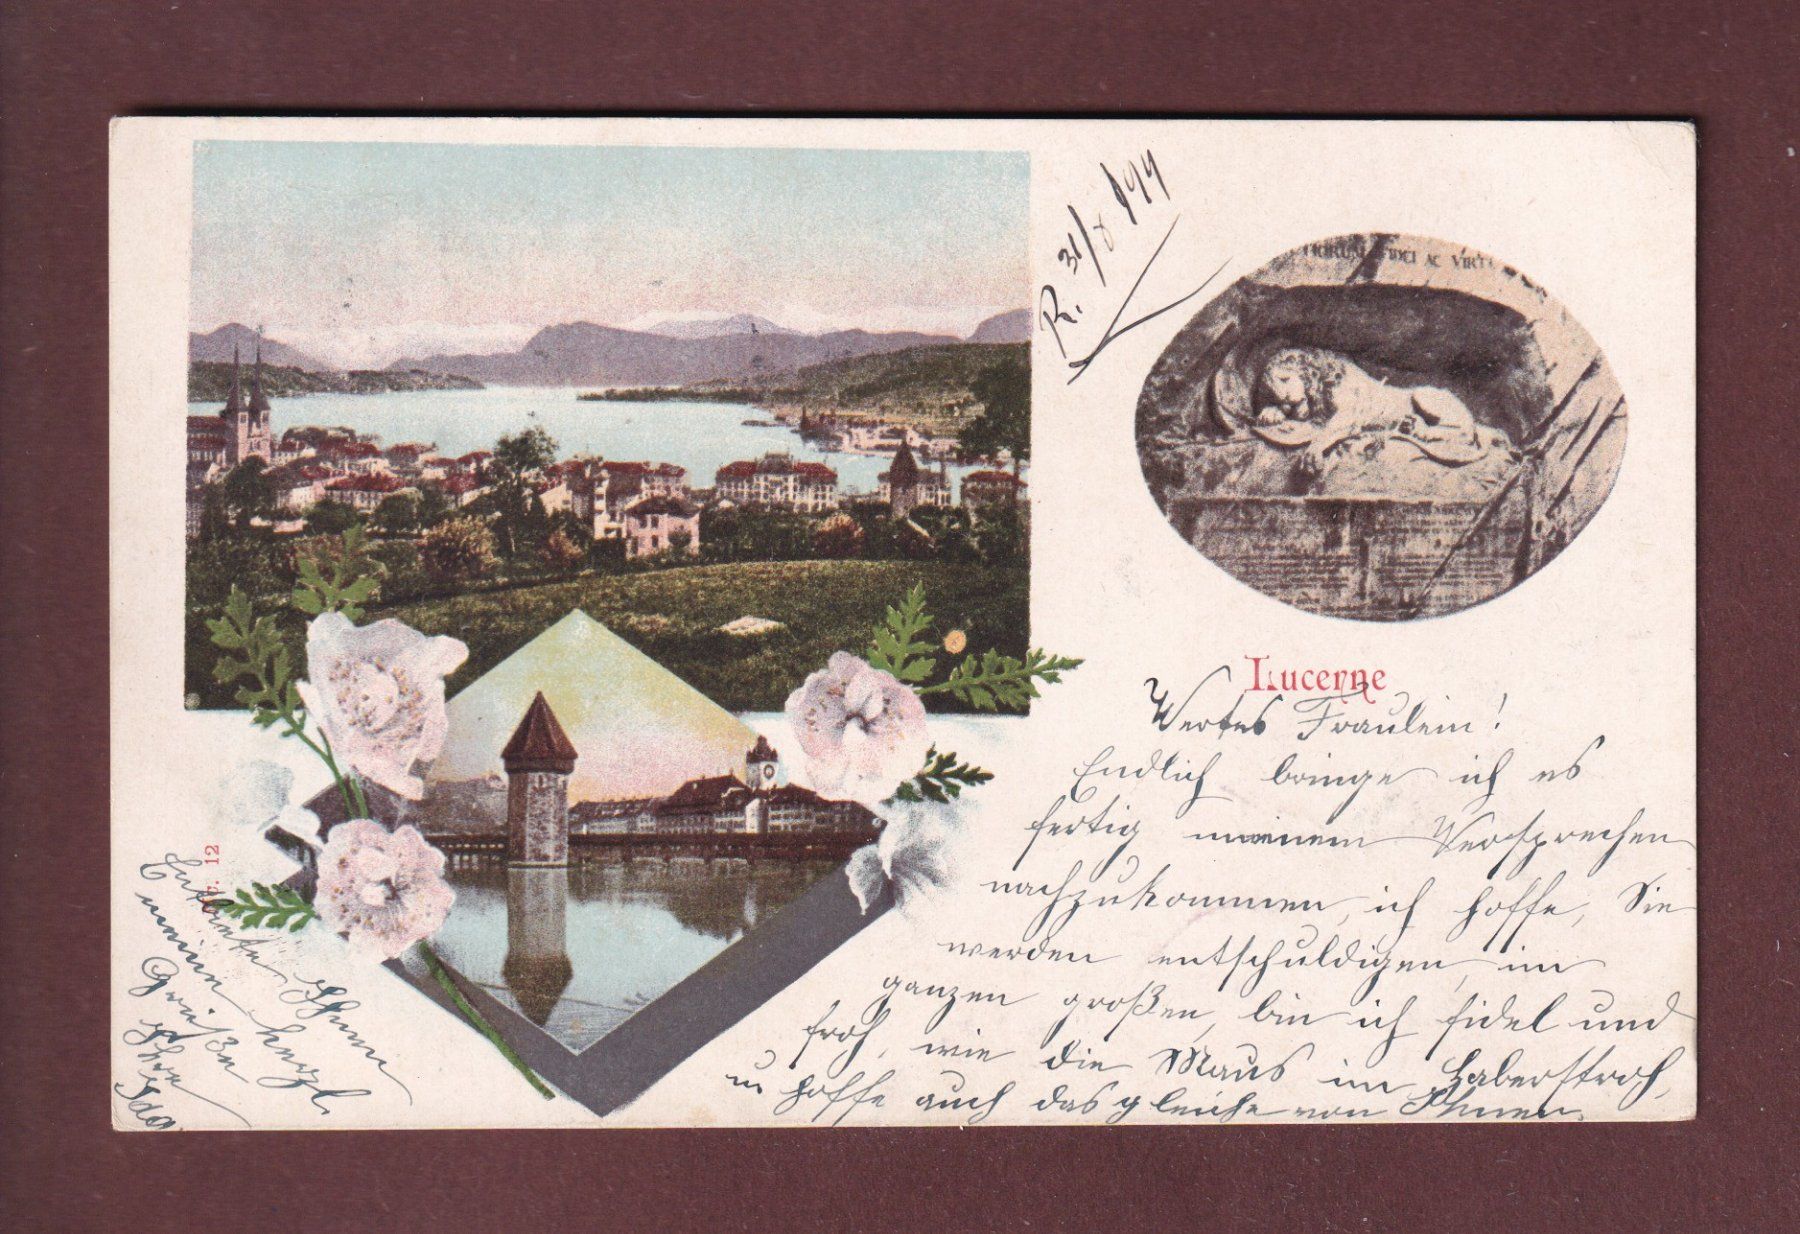 R. 31/8 1899
HORUM FIDEI AC VIRTU
Lucerne
Wertes Fräulein!
Endlich bringe ich es
fertig meinem Versprechen
nachzukommen, ich hoffe, Sie
werden entschuldigen, im
ganzen großen, bin ich fidel und
froh, wie die Maus im Haberstroh,
u hoffe auch das gleiche von Ihnen.
Entbiete Ihnen
meine herzl.
Grüße
Ihre
Ida
12